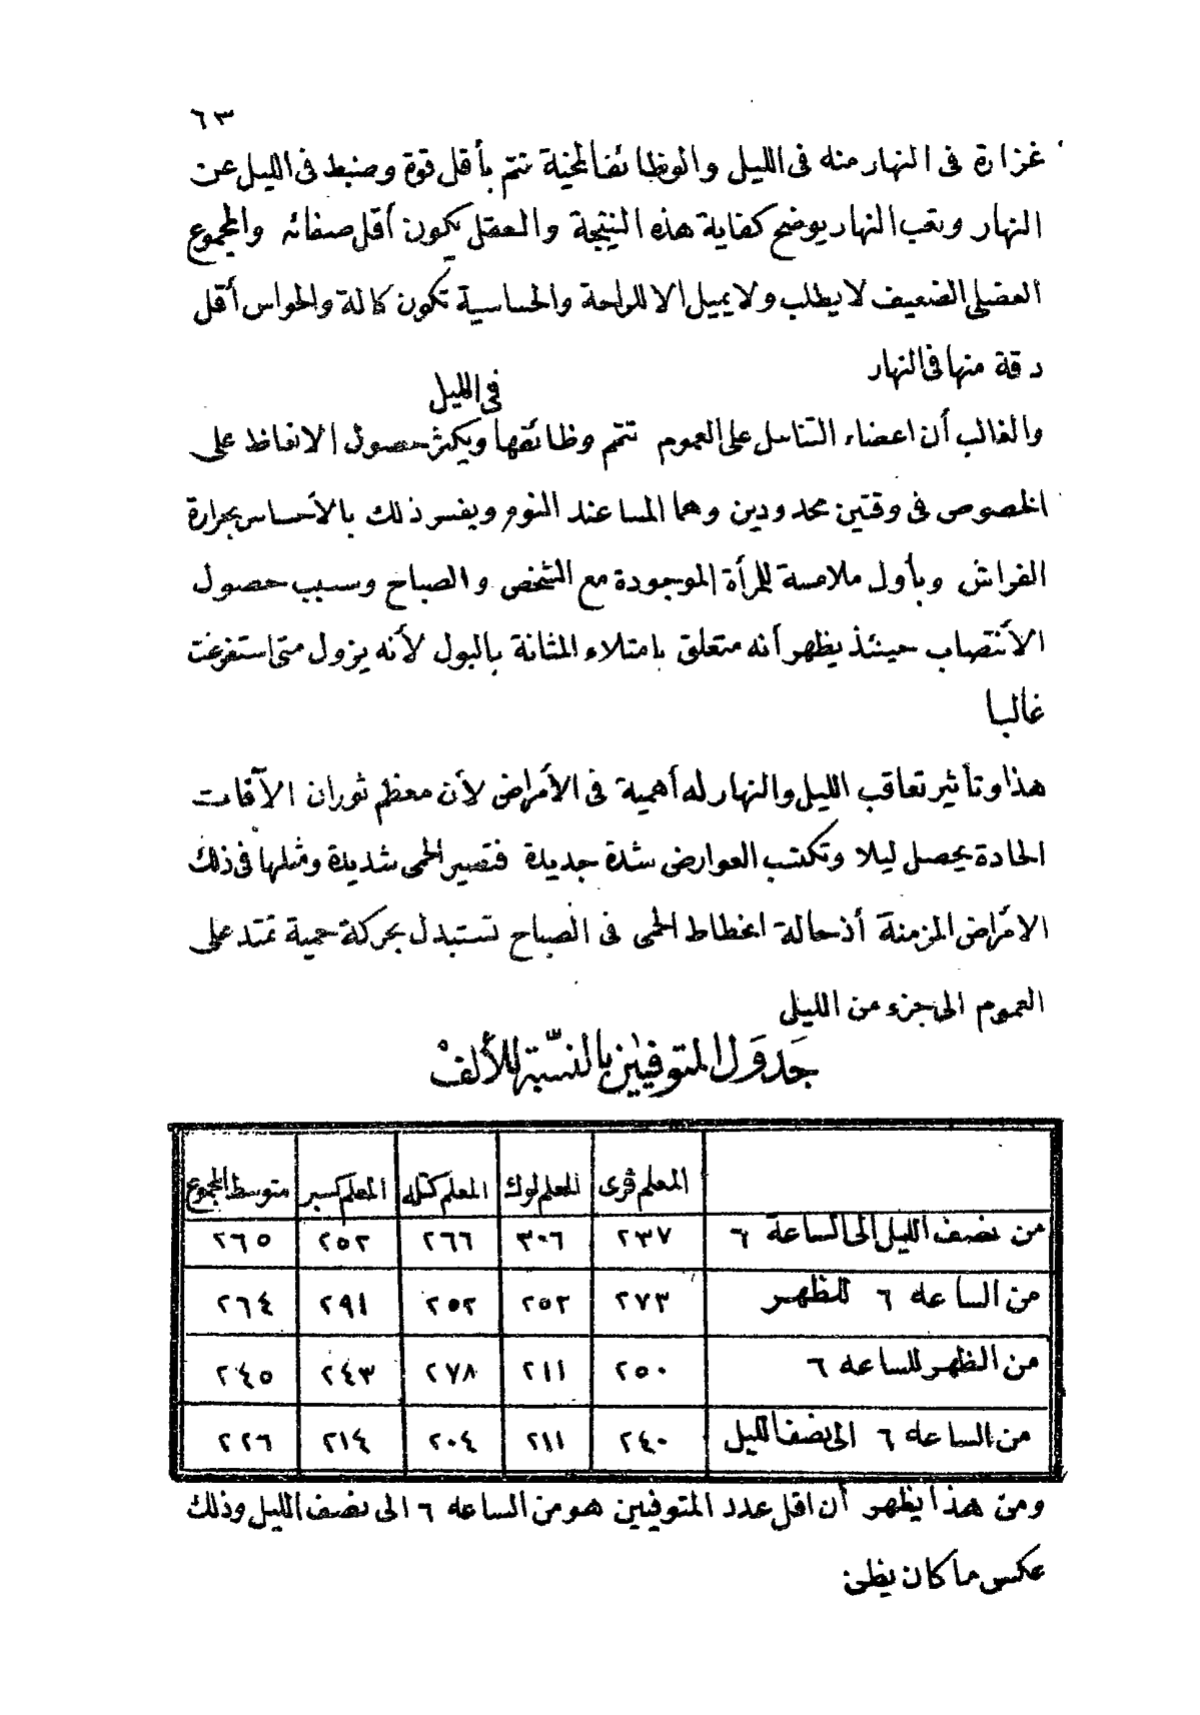 ٦٣
غزارة فى النهار منه فى الليل والوظائف المخية تتم بأقل قوة وضبط فى الليل عن
النهار وتعب النهار يوضح كفاية هذه النتيجة والعقل يكون أقل صفائه والمجموع
العضلى الضعيف لا يطلب ولا يميل الا للراحة والحساسية تكون كالة والحواس أقل
دقة منها فى النهار
فى الليل
والغالب أن اعضاء التناسل على العموم تتم وظائفها ويكثر حصول الانعاظ على
الخصوص فى وقتين محدودين وهما المسا عند النوم ويفسر ذلك بالأحساس بحرارة
الفراش وبأول ملامسة للمرأة الموجودة مع الشخص والصباح وسبب حصول
الأنتصاب حينئذ يظهر أنه متعلق بامتلاء المثانة بالبول لأنه يزول متى استفرغت
غالبا
هذا وتأثير تعاقب الليل والنهار له أهمية فى الأمراض لأن معظم ثوران الآفات
الحادة يحصل ليلا وتكتسب العوارض شدة جديدة فتصير الحمى شديدة ومثلها فى ذلك
الامراض المزمنة أذ حالة انحطاط الحمى فى الصباح تستبدل بحركة حمية تمتد على
العموم الى جزء من الليل
جَدوَل المتوفيين بالنسّبة للألف
المعلم ڤرى المعلم لوك المعلم كتله المعلم كسبر متوسط المجموع
من نصف الليل الى الساعة ٦ ٢٣٧ ٣٠٦ ٢٦٦ ٢٥٢ ٢٦٥
من الساعه ٦ للظهر ٢٧٣ ٢٥٢ ٢٥٢ ٢٩١ ٢٦٤
من الظهر للساعه ٦ ٢٥٠ ٢١١ ٢٧٨ ٢٤٣ ٢٤٥
من الساعه ٦ الى نصف الليل ٢٤٠ ٢١١ ٢٠٤ ٢١٤ ٢٢٦
ومن هذا يظهر أن اقل عدد المتوفيين هو من الساعه ٦ الى نصف الليل وذلك
عكس ما كان يظن